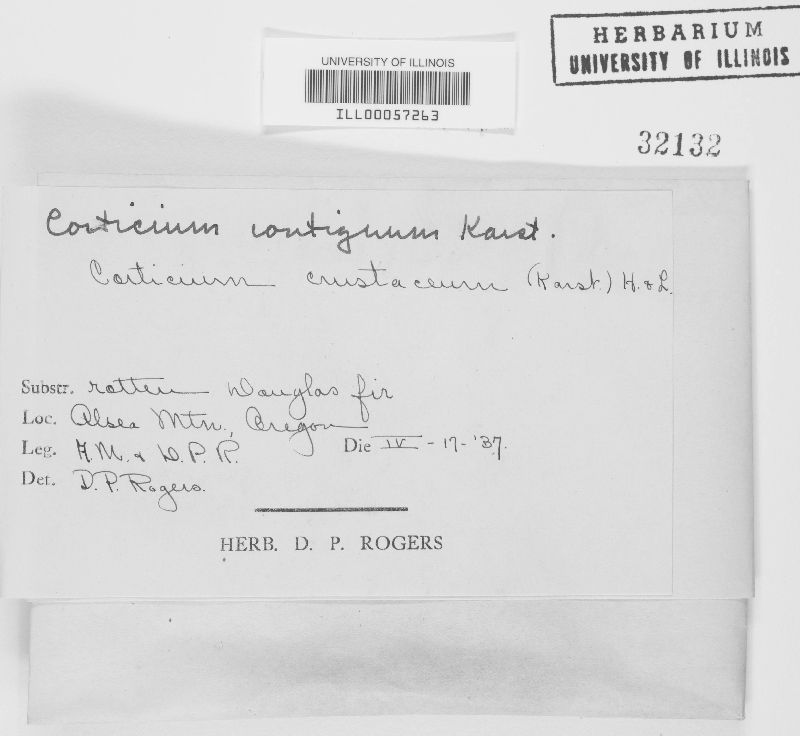 HERBARIUM
UNIVERSITY OF ILLINOIS
UNIVERSITY OF ILLINOIS
ILL00057263
32132
Corticium contiguum Karst.
Corticium crustaceum (Karst.) H. & L.
Substr. rotten Douglas fir
Loc. Alsea Mtn., Oregon
Leg. A.M. & D.P.R. Die IV-17-'37.
Det. D.P. Rogers.
HERB. D. P. ROGERS